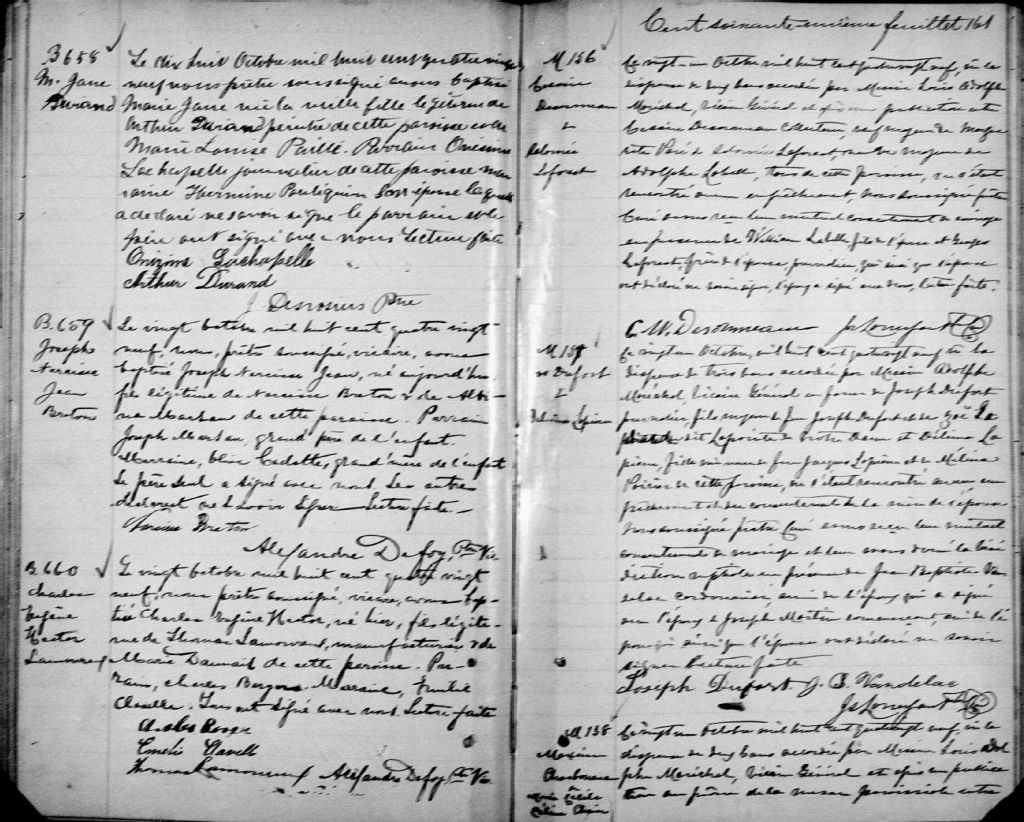 B 658
M. Jane
Durand
Le dix huit Octobre mil huit cent quatre vingt
neuf nous prêtre soussigné avons baptisé
Marie Jane née la veille fille légitime de
Arthur Durand peintre de cette paroisse et de
Marie Louise Paillé. Parrain Onesime
Lachapelle journalier de cette paroisse mar
raine Hermine Pauléquin son épouse laquelle
a declaré ne savoir signe le parrain et le
père ont signé avec nous Lecture faite
Onizime Lachapelle
Arthur Durand
J. Desrosiers Ptre
B. 659
Joseph
Narcisse
Jean
Breton
Le vingt octobre mil huit cent quatre vingt
neuf, nous, prêtre soussigné, vicaire, avons
baptisé Joseph Narcisse Jean, né aujourd'hui,
fils légitime de Narcisse Breton & de Albi-
na Marsan de cette paroisse. Parrain
Joseph Marsan, grand père de l'enfant.
Marraine, Cadotte, grand'mère de l'enfant
Le père seul a signé avec nous. Les autres
déclarent ne savoir signer. Lecture faite
Breton
Alexandre Defoy Ptre Vic
B 660
Charles
Eugène
Hector
Lamoureux
Le vingt octobre mil huit cent quatre vingt
neuf, nous prêtre soussigné, vicaire, avons bap-
tisé Charles Eugène Hector, né hier, fils légiti-
me de Thomas Lamoureux, manufacturier & de
Marie Daunais de cette paroisse. Par-
rain, Charles Marraine, Emélie
Clavelle. Tous ont signé avec nous. Lecture faite
Emélie Clavelle
Thomas Lamoureux Alexandre Defoy Ptre Vic
Cent soixante-unième feuillet 161
M 136
Cessaire
Desormeau
&
Delvenie
Leforest
Le vingt-un Octobre mil huit cent quatrevingt neuf, vu la
dispense de deux bans accordée par Messire Louis Adolphe
Maréchal, Vicaire Général et publication entre
Desormeau veuf majeur de
Leforest, majeure de
Adolphe Labelle, tous de cette paroisse, ne s'étant
rencontré aucun empêchement, nous soussigné prêtre
Curé avons reçu leur mutuel consentement de mariage
en presence de William Labelle fils de l'épouse et Georges
Leforest, frère de l'épouse, qui ainsi que l'épouse
ont déclaré ne savoir signer, l'époux a signé avec nous, lecture faite.
C. W. Desormeau
M 137
Dufort
&
Delima Lapierre
Le vingt un Octobre, mil huit cent quatrevingt neuf vu la
dispense de trois bans accordée par Messire Adolphe
Maréchal, Vicaire Général en faveur de Joseph Dufort
journalier, fils majeur de feu Joseph Dufort et de
dit Lapointe de Notre Dame et Délima La
pierre, fille mineure de feu Jacques Lapierre et de Mélina
de cette paroisse, ne s'étant rencontré aucun em
pêchement et du consentement de la mère de l'épouse
nous soussigné prêtre Curé avons reçu leur mutuel
consentement de mariage et leur avons donné la béné
diction nuptiale en présence de Jean Baptiste Van
delac cordonnier, ami de l'époux qui a signé
avec l'époux & Joseph Martin commerçant, ami de l'é
poux qui ainsi que l'épouse ont déclaré ne savoir
signer Lecture faite
Joseph Dufort J. B. Vandelac
M 138
Maxime
Charbonneau
&
Marie
Le vingt un Octobre mil huit cent quatrevingt neuf, vu la
dispense de deux bans accordée par Messire Louis Adol
phe Maréchal, Vicaire Général et après une publica
tion au prône de la messe paroissiale entre